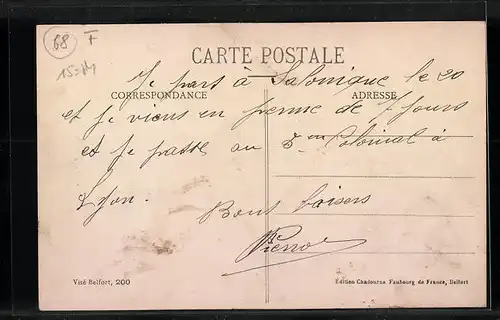 68 F
CARTE POSTALE
Je pars à Salonique le 20
CORRESPONDANCE
ADRESSE
et je viens en perme de 7 jours
et je passe au 5 em Colonial à
Lyon.
Bons baisers
Pierrot
Visé Belfort, 200
Edition Chadourne Faubourg de France, Belfort